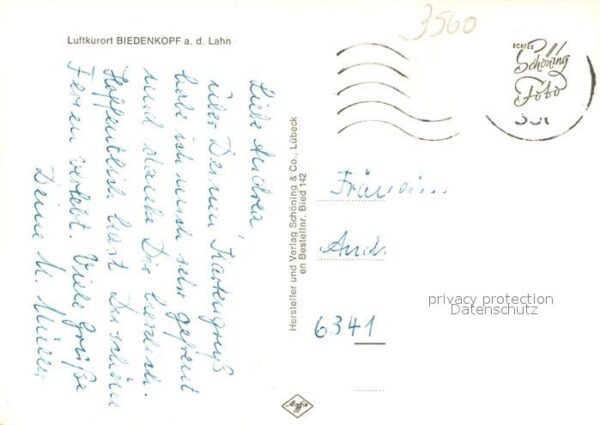 Luftkurort BIEDENKOPF a. d. Lahn
3560
ECHTES
Schöning
Foto
Liebe Andrea,
über Deinen Kartengruß
habe ich mich sehr gefreut
und danke Dir herzlich.
Hoffentlich hast Du schöne
Ferien verlebt. Viele Grüße
Deine U. Müller
Hersteller und Verlag Schöning & Co., Lübeck
en Bestellnr. Bied 142
Fräulein
And
6341
privacy protection
Datenschutz
Agfa